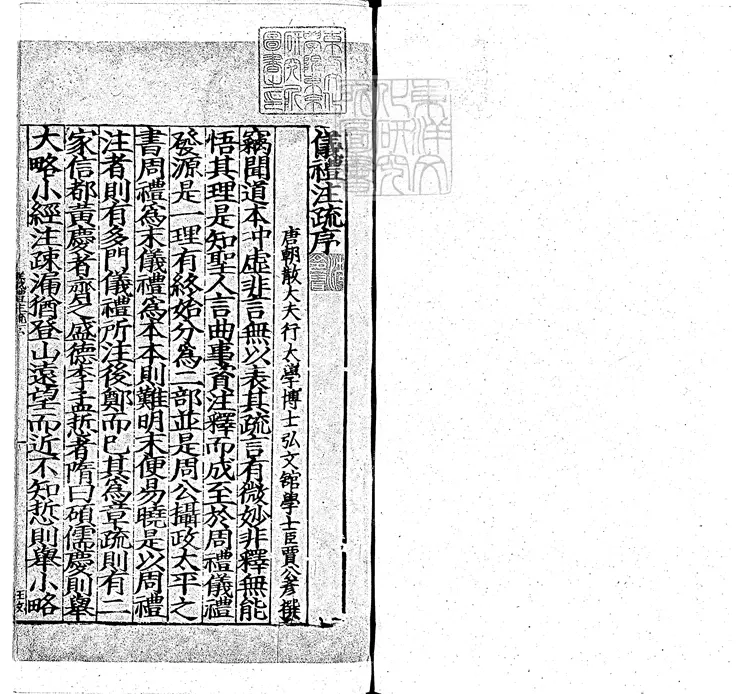 儀禮注疏序
唐朝散大夫行大學博士弘文館學士臣賈公彥撰
竊聞道本冲虛非言無以表其疏言有微妙非釋無能
悟其理是知聖人言曲事資注釋而成至於周禮儀禮
發源是一理有終始分爲二部並是周公攝政太平之
書周禮爲末儀禮爲本本則難明末便易曉是以周禮
注者則有多門儀禮所注後鄭而已其爲章疏則有二
家信都黃慶者齊之盛德李孟悊者隋曰碩儒慶則舉
大略小經注疎漏猶登山遠望而近不知悊則舉小略